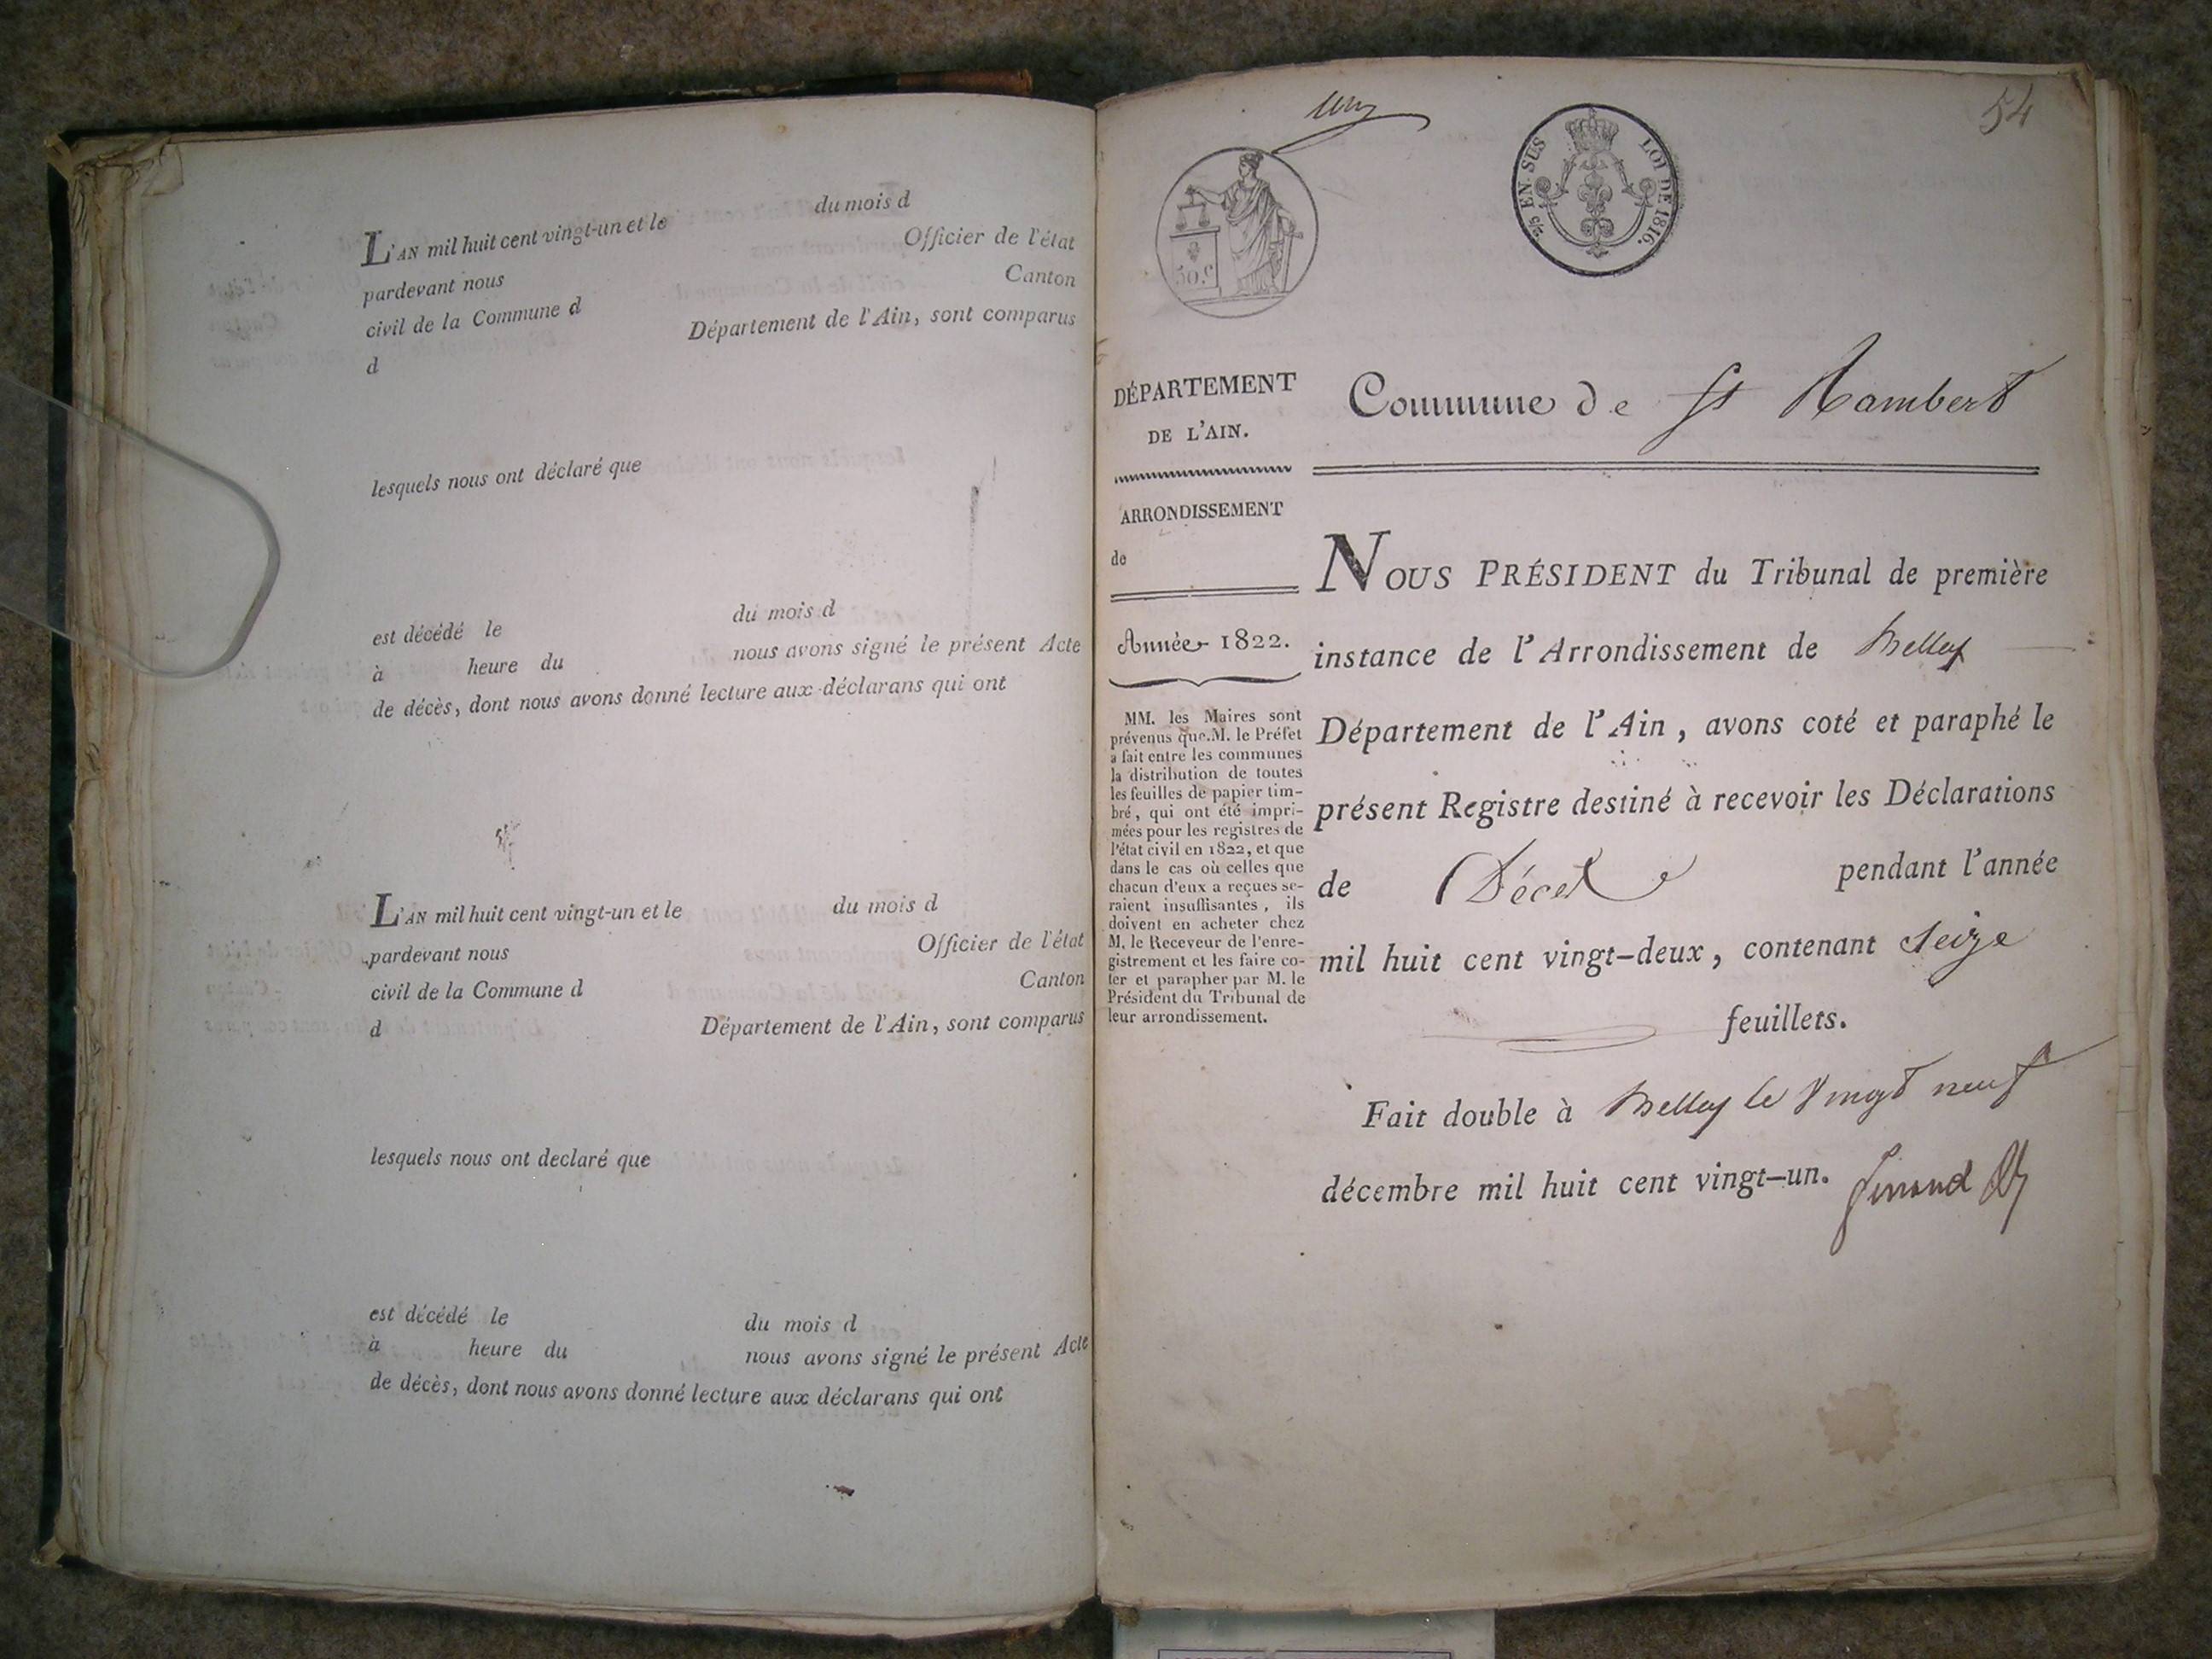 du mois d
L'AN mil huit cent vingt-un et le
Officier de l'état
pardevant nous
Canton
civil de la Commune d
Département de l'Ain, sont comparus
d
lesquels nous ont déclaré que
est décédé le
du mois d
à heure du
nous avons signé le présent Acte
de décès, dont nous avons donné lecture aux déclarans qui ont
L'AN mil huit cent vingt-un et le
du mois d
pardevant nous
Officier de l'état
civil de la Commune d
Canton
d
Département de l'Ain, sont comparus
lesquels nous ont declaré que
est décédé le
du mois d
à heure du
nous avons signé le présent Acte
de décès, dont nous avons donné lecture aux déclarans qui ont
54
EN SUS
LOI DE 1816.
50 c
DÉPARTEMENT
DE L'AIN.
ARRONDISSEMENT
de
Année 1822.
MM. les Maires sont
prévenus que M. le Préfet
a fait entre les communes
la distribution de toutes
les feuilles de papier tim-
bré, qui ont été impri-
mées pour les registres de
l'état civil en 1822, et que
dans le cas où celles que
chacun d'eux a reçues se-
raient insuffisantes, ils
doivent en acheter chez
M. le Receveur de l'enre-
gistrement et les faire co-
ter et parapher par M. le
Président du Tribunal de
leur arrondissement.
Commune de St Rambert
NOUS PRÉSIDENT du Tribunal de première
instance de l'Arrondissement de Belley
Département de l'Ain, avons coté et paraphé le
présent Registre destiné à recevoir les Déclarations
de Décès pendant l'année
mil huit cent vingt-deux, contenant Seize
feuillets.
Fait double à Belley le Vingt neuf
décembre mil huit cent vingt-un.